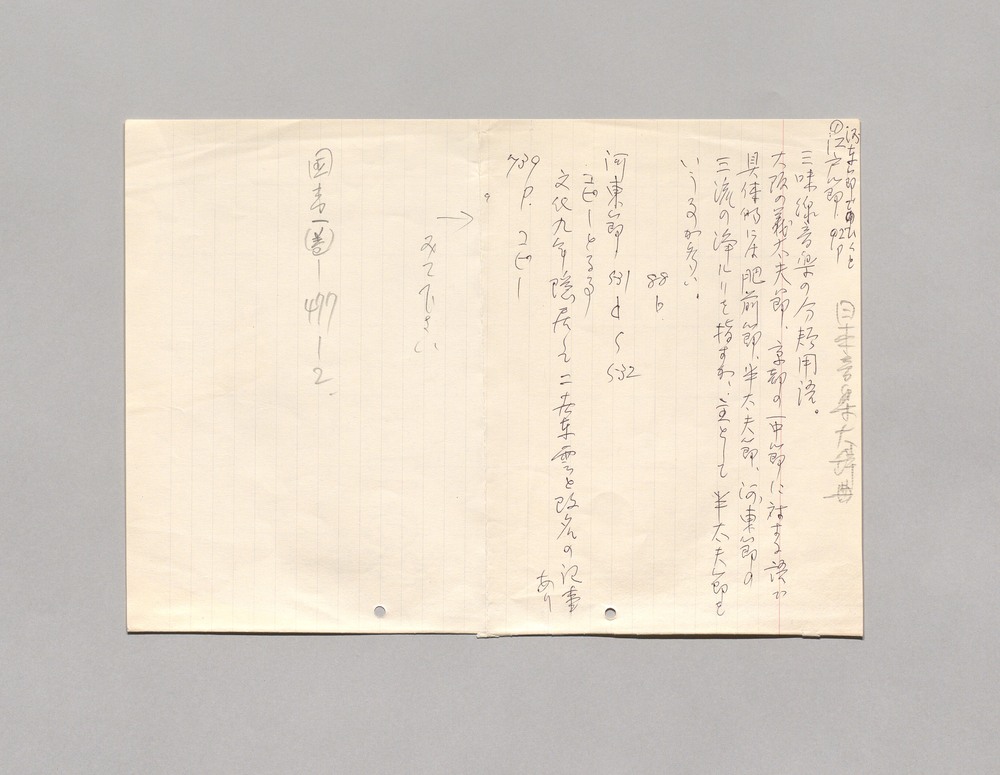 ①江戸節 92P
日本音楽大辞典
三味線音楽の分類用語。
大阪の義太夫節、京都の一中節に対する語で
具体的には肥前節、半太夫節、河東節の
三流の浄ルリを指すが、主として半太夫節を
いうるが多い。
88 b.
河東節 531 d 〜 532
コピーとる
文化九年隠居して二世東雲と改名の記事
あり
739 P. コピー
→
みて下さい
国書一巻ー477ー2